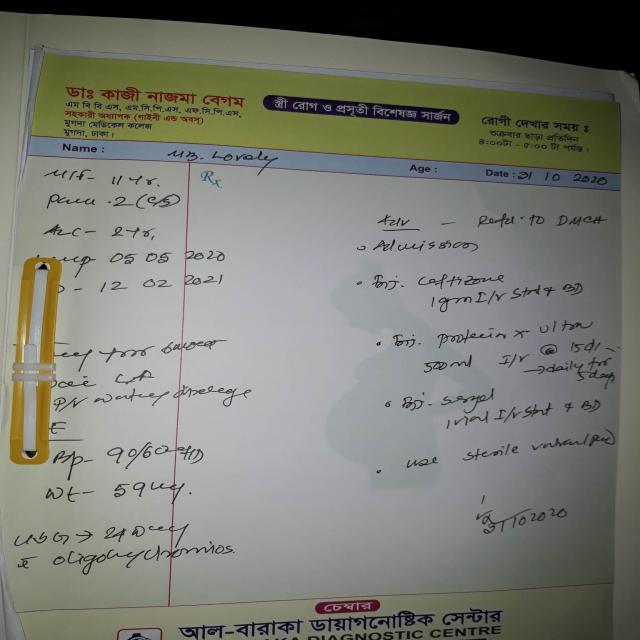 ডাঃ কাজী নাজমা বেগম
এম বি বি এস, এম.সি.পি.এস, এফ.সি.পি.এস,
সহকারী অধ্যাপক (গাইনী এন্ড অবস্)
মুগদা মেডিকেল কলেজ
মুগদা, ঢাকা।
স্ত্রী রোগ ও প্রসূতী বিশেষজ্ঞ সার্জন
রোগী দেখার সময় ঃ
শুক্রবার ছাড়া প্রতিদিন
৪:০০টা - ৫:০০ টা পর্যন্ত।
Name : Lovely Age : Date : 31 10 2020
Rx
M/F- 11 yr.
Para - 2 (C/S)
ALC- 2 yr.
05 05 2020
- 12 02 2021
P/V watery discharge
E
Bp- 90/60
Wt- 59 kg.
USG → 24 
oligohydramnios.
Adv - Refd. to DMCH
Admission
Inj. Ceftizone
1gm I/V Stat & BD
Inj. Protein x ultra
500ml I/V @ 15d/-
→ daily for
5 days
Inj. Sergel
1 vial I/V Stat & BD
use sterile
31102020
চেম্বার
আল-বারাকা ডায়াগনোষ্টিক সেন্টার
DIAGNOSTIC CENTRE